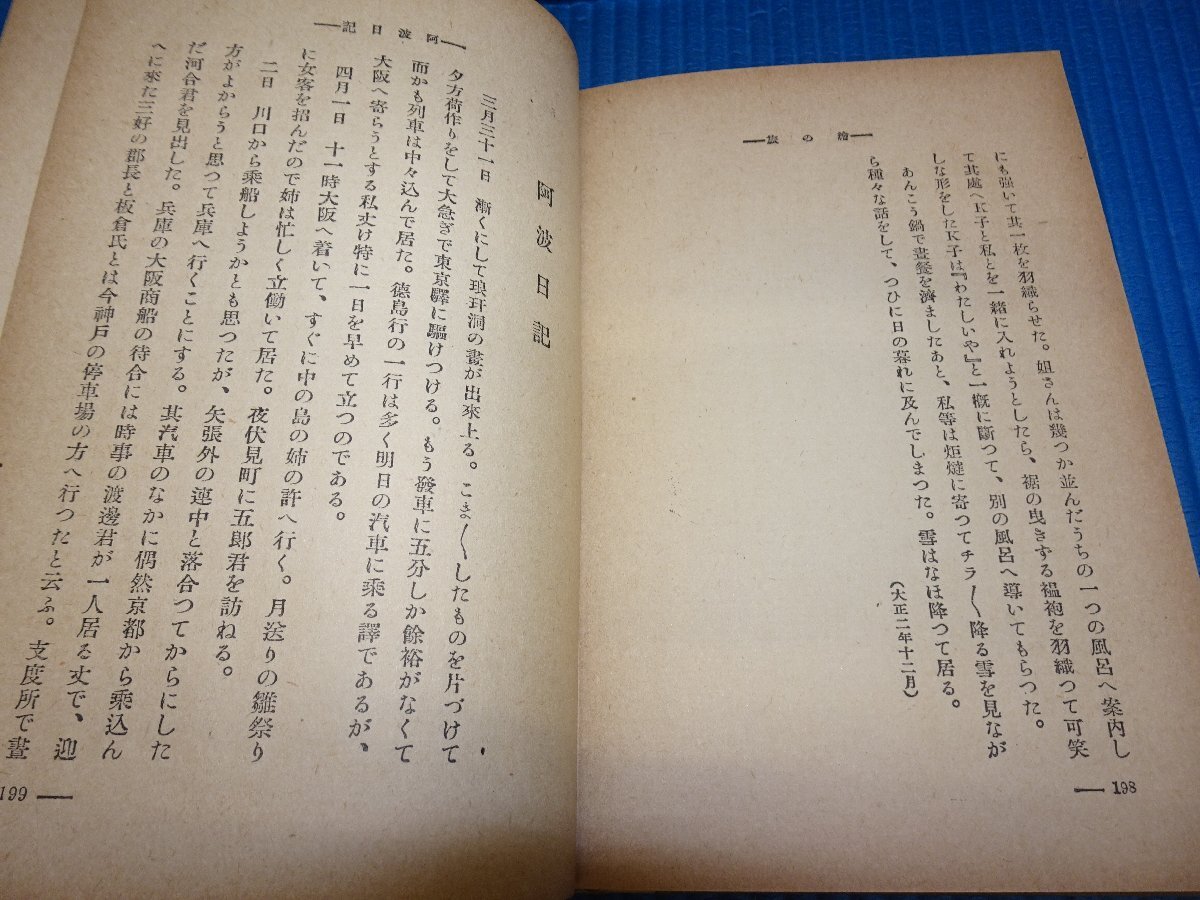 ―繪の旅―
にも强いて其一枚を羽織らせた。姐さんは幾つか並んだうちの一つの風呂へ案内し
て其處へK子と私とを一緒に入れようとしたら、裾の曳きずる褞袍を羽織つて可笑
しな形をしたK子は『わたしいや』と一概に斷つて、別の風呂へ導いてもらつた。
あんこう鍋で晝餐を濟ましたあと、私等は炬燵に寄つてチラ〱降る雪を見なが
ら種々な話をして、つひに日の暮れに及んでしまつた。雪はなほ降つて居る。
(大正二年十二月)
― 198
―阿波日記―
阿波日記
三月三十一日 漸くにして琅玕洞の畫が出來上る。こま〱したものを片づけて
夕方荷作りをして大急ぎで東京驛に驅けつける。もう發車に五分しか餘裕がなくて
而かも列車は中々込んで居た。德島行の一行は多く明日の汽車に乘る譯であるが、
大阪へ寄らうとする私丈け特に一日を早めて立つのである。
四月一日 十一時大阪へ着いて、すぐに中の島の姉の許へ行く。月送りの雛祭り
に女客を招んだので姉は忙しく立働いて居た。夜伏見町に五郎君を訪ねる。
二日 川口から乘船しようかとも思つたが、矢張外の連中と落合つてからにした
方がよからうと思つて兵庫へ行くことにする。其汽車のなかに偶然京都から乘込ん
だ河合君を見出した。兵庫の大阪商船の待合には時事の渡邊君が一人居る丈で、迎
へに來た三好の郡長と板倉氏とは今神戸の停車場の方へ行つたと云ふ。支度所で晝
199 ―